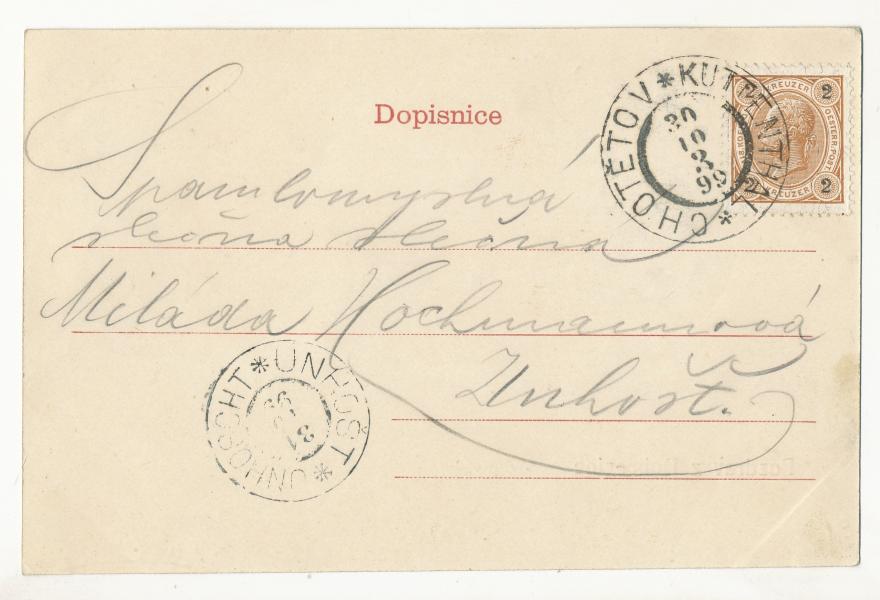 Dopisnice
CHOTĚTOV * KUTTENTHAL *
30
10
3
99
2 KREUZER 2
OESTERR. POST
2 KREUZER 2
Spanilomyslná
slečna slečna
Miláda Hochmannová
Unhošť.
UNHOŠT * UNHOSCHT *
31
10
99